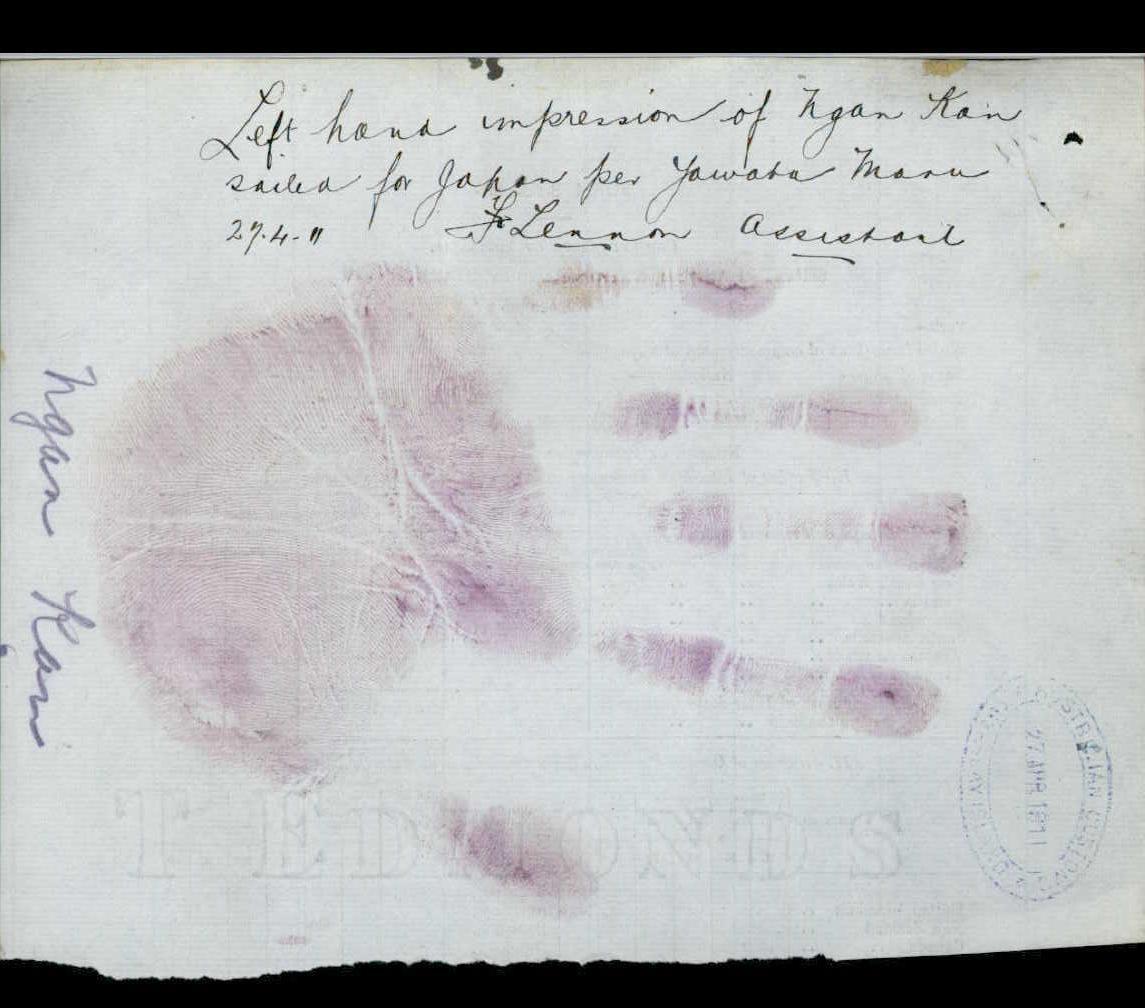 Left hand impression of Ngan Kan
sailed for Japan per Yawata Maru
27.4.11 F Lennon Assistant
Ngan Kan
T EDMONDS
27 APR 1911